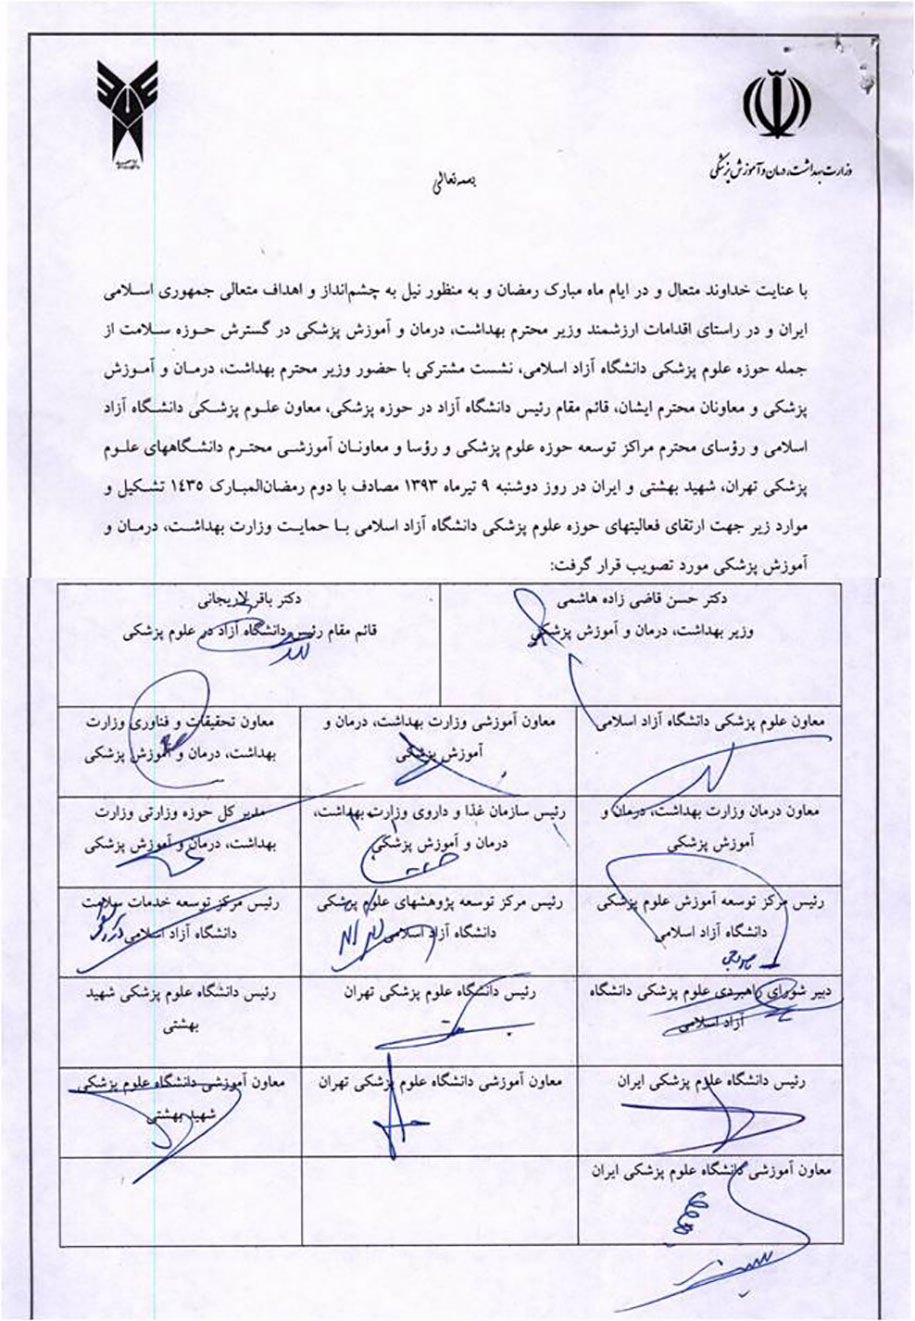 وزارت بهداشت، درمان و آموزش پزشکی
بسمه تعالی
با عنایت خداوند متعال و در ایام ماه مبارک رمضان و به منظور نیل به چشم‌انداز و اهداف متعالی جمهوری اسلامی
ایران و در راستای اقدامات ارزشمند وزیر محترم بهداشت، درمان و آموزش پزشکی در گسترش حوزه سلامت از
جمله حوزه علوم پزشکی دانشگاه آزاد اسلامی، نشست مشترکی با حضور وزیر محترم بهداشت، درمان و آموزش
پزشکی و معاونان محترم ایشان، قائم مقام رئیس دانشگاه آزاد در حوزه پزشکی، معاون علوم پزشکی دانشگاه آزاد
اسلامی و رؤسای محترم مراکز توسعه حوزه علوم پزشکی و رؤسا و معاونان آموزشی محترم دانشگاههای علوم
پزشکی تهران، شهید بهشتی و ایران در روز دوشنبه ۹ تیرماه ۱۳۹۳ مصادف با دوم رمضان‌المبارک ۱۴۳۵ تشکیل و
موارد زیر جهت ارتقای فعالیتهای حوزه علوم پزشکی دانشگاه آزاد اسلامی با حمایت وزارت بهداشت، درمان و
آموزش پزشکی مورد تصویب قرار گرفت:
دکتر حسن قاضی زاده هاشمی
وزیر بهداشت، درمان و آموزش پزشکی
دکتر باقر لاریجانی
قائم مقام رئیس دانشگاه آزاد در علوم پزشکی
معاون علوم پزشکی دانشگاه آزاد اسلامی
معاون آموزشی وزارت بهداشت، درمان و
آموزش پزشکی
معاون تحقیقات و فناوری وزارت
بهداشت، درمان و آموزش پزشکی
معاون درمان وزارت بهداشت، درمان و
آموزش پزشکی
رئیس سازمان غذا و داروی وزارت بهداشت،
درمان و آموزش پزشکی
مدیر کل حوزه وزارتی وزارت
بهداشت، درمان و آموزش پزشکی
رئیس مرکز توسعه آموزش علوم پزشکی
دانشگاه آزاد اسلامی
رئیس مرکز توسعه پژوهشهای علوم پزشکی
دانشگاه آزاد اسلامی
رئیس مرکز توسعه خدمات سلامت
دانشگاه آزاد اسلامی
دبیر شورای راهبردی علوم پزشکی دانشگاه
آزاد اسلامی
رئیس دانشگاه علوم پزشکی تهران
رئیس دانشگاه علوم پزشکی شهید
بهشتی
رئیس دانشگاه علوم پزشکی ایران
معاون آموزشی دانشگاه علوم پزشکی تهران
معاون آموزشی دانشگاه علوم پزشکی
شهید بهشتی
معاون آموزشی دانشگاه علوم پزشکی ایران